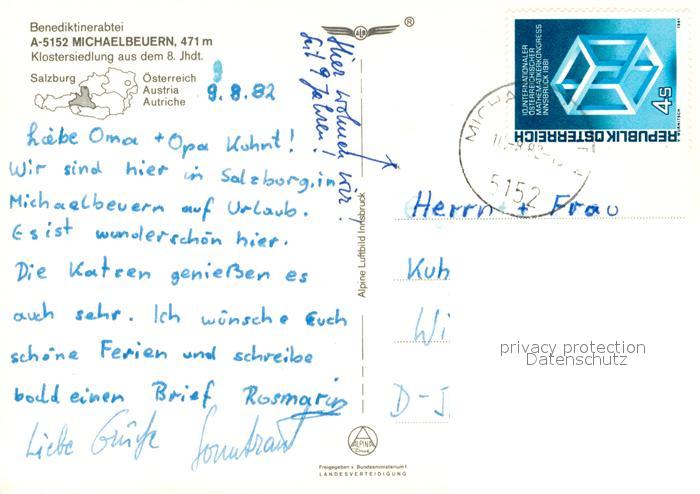 Benediktinerabtei
A-5152 MICHAELBEUERN, 471 m
Klostersiedlung aus dem 8. Jhdt.
Salzburg
Österreich
Austria
Autriche
9.8.82
Liebe Oma + Opa Kuhnt!
Wir sind hier in Salzburg, in
Michaelbeuern auf Urlaub.
Es ist wunderschön hier.
Die Katzen genießen es
auch sehr. Ich wünsche Euch
schöne Ferien und schreibe
bald einen Brief Rosmarin
Liebe Grüße
Hier wohnen wir!
seit 9 Jahren!
Alpine Luftbild Innsbruck
ALPINE
Freigegeben v. Bundesministerium f.
LANDESVERTEIDIGUNG
®
10. INTERNATIONALER
ÖSTERREICHISCHER
MATHEMATIKERKONGRESS
INNSBRUCK 1981
REPUBLIK ÖSTERREICH
4 S
1981
MICHA
5152
Herrn + Frau
Kuh
Wi
D-
privacy protection
Datenschutz